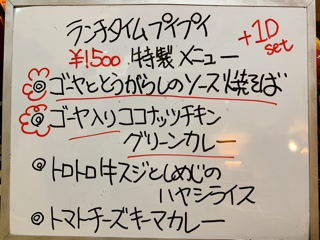 ランチタイムプイプイ
¥1500 特製メニュー
+1D set
◎ゴーヤととうがらしのソース焼そば
◎ゴーヤ入りココナッツチキン
グリーンカレー
◎トロトロ牛スジとしめじの
ハヤシライス
◎トマトチーズキーマカレー